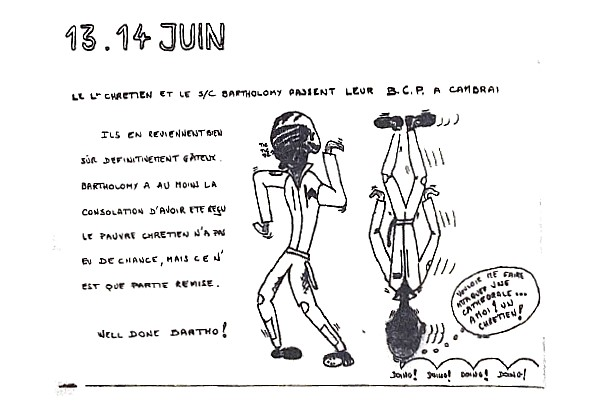 13.14 JUIN
LE Lt CHRETIEN ET LE S/C BARTHOLOMY PASSENT LEUR B.C.P. A CAMBRAI
ILS EN REVIENNENT BIEN
SÛR DEFINITIVEMENT GÂTEUX.
BARTHOLOMY A AU MOINS LA
CONSOLATION D'AVOIR ETE REÇU
LE PAUVRE CHRETIEN N'A PAS
EU DE CHANCE, MAIS CE N'
EST QUE PARTIE REMISE.
WELL DONE BARTHO!
VOULOIR ME FAIRE
ATTAQUER UNE
CATHEDRALE...
A MOI! UN
CHRETIEN!
DOING! DOING! DOING! DOING!